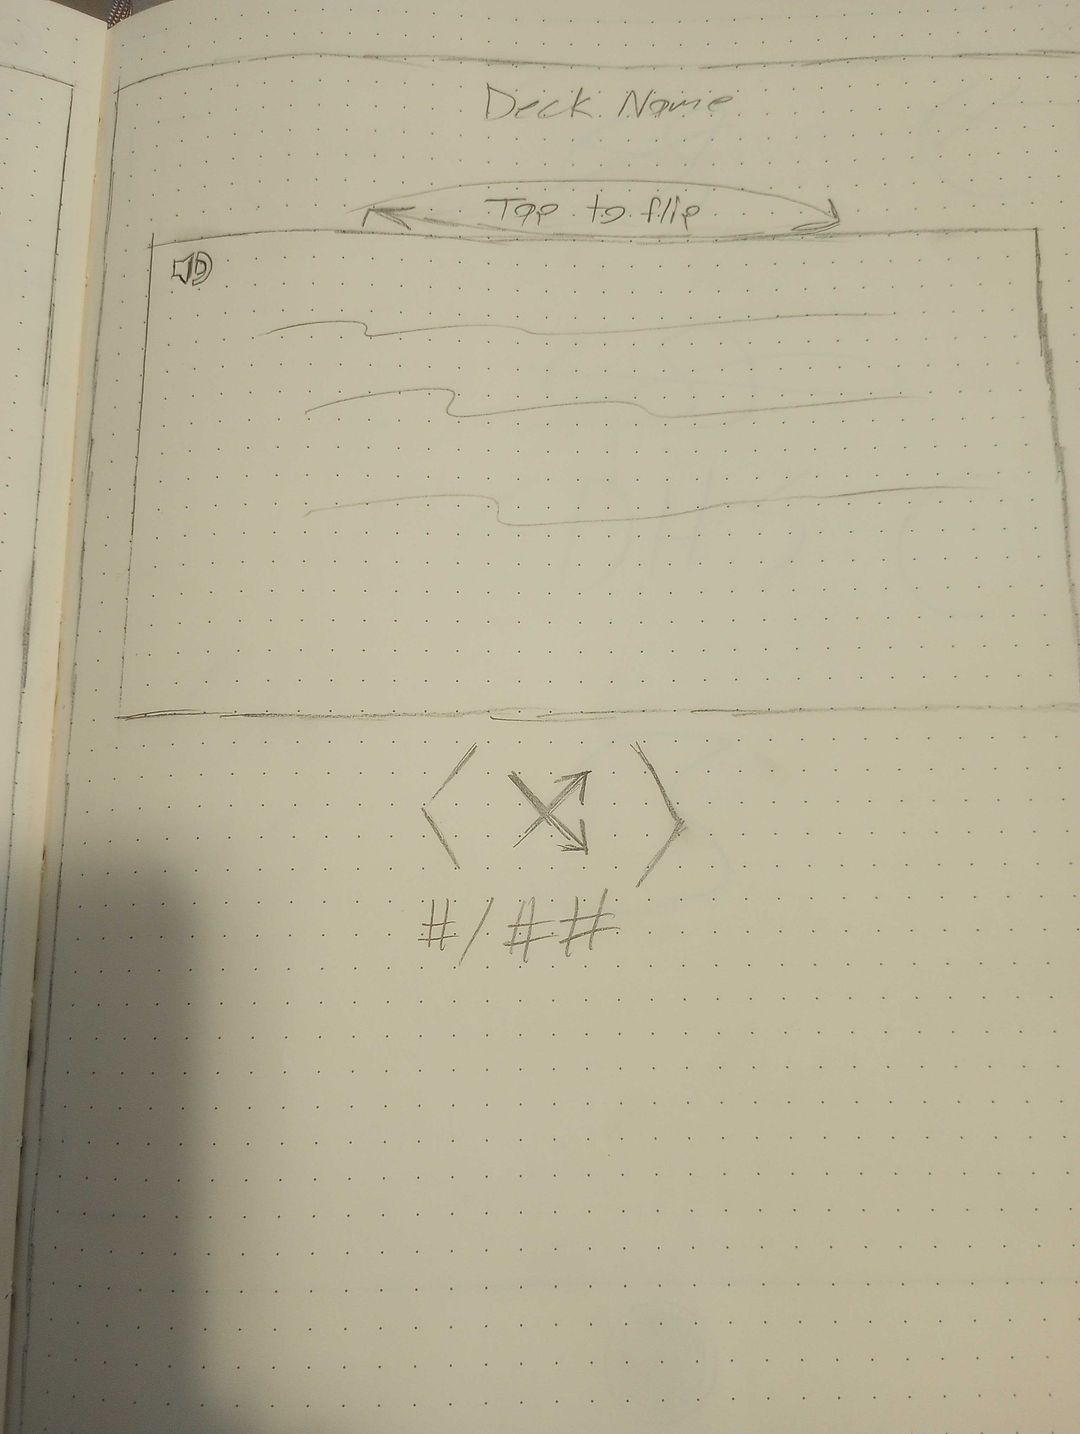 Deck Name
Tap to flip
#/##